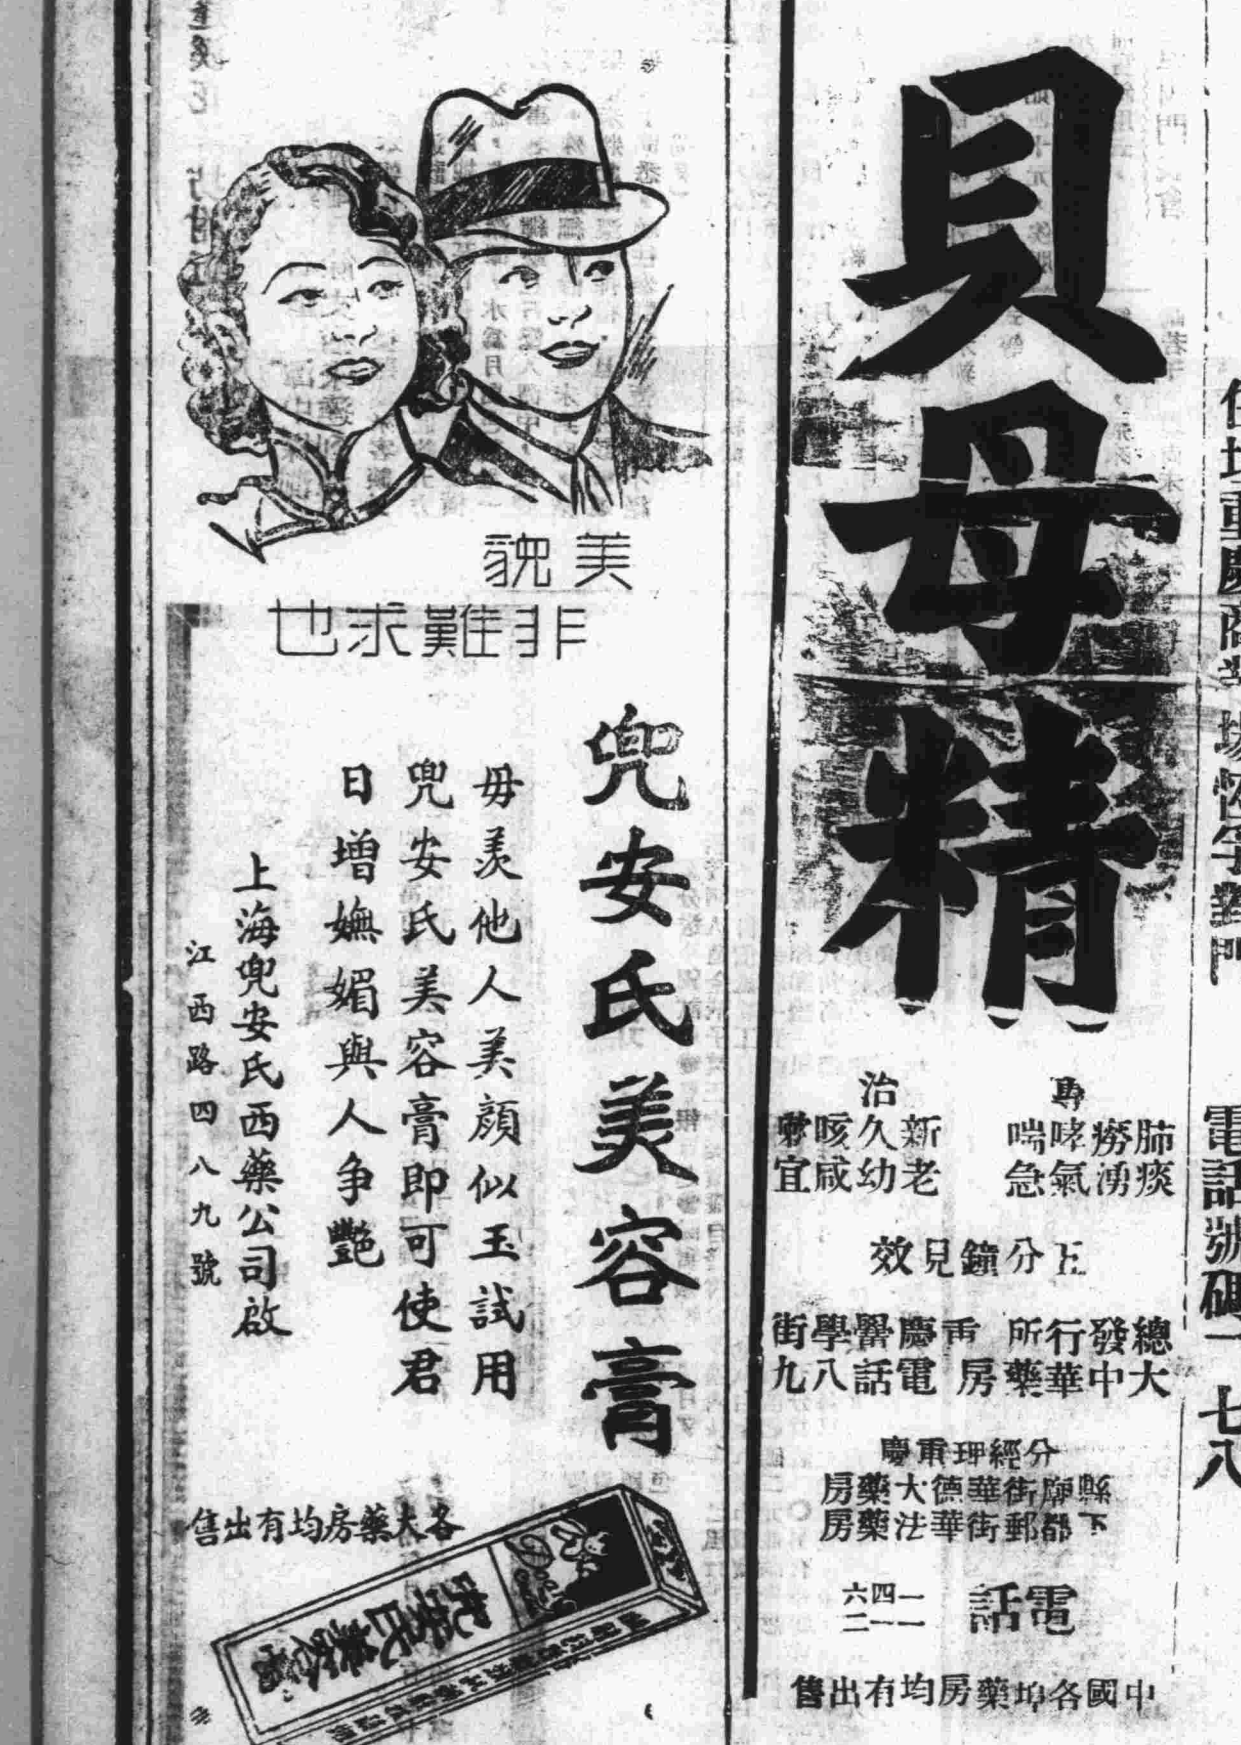 貝母精
專治
肺癆哮喘
痰湧氣急
新久咳嗽
老幼咸宜
五分鐘見效
總發行所
重慶雞學街
大中華藥房
電話八九
分經理重慶
縣廟街華德大藥房
下都郵街華法藥房
電話
一四六
一一二
中國各埠藥房均有出售
美貌
非難求也
兜安氏美容膏
毋羨他人美顏似玉試用
兜安氏美容膏即可使君
日增嫵媚與人争艷
上海兜安氏西藥公司啟
江西路四八九號
各大藥房均有出售
兜安氏美容膏
電話號碼一七八